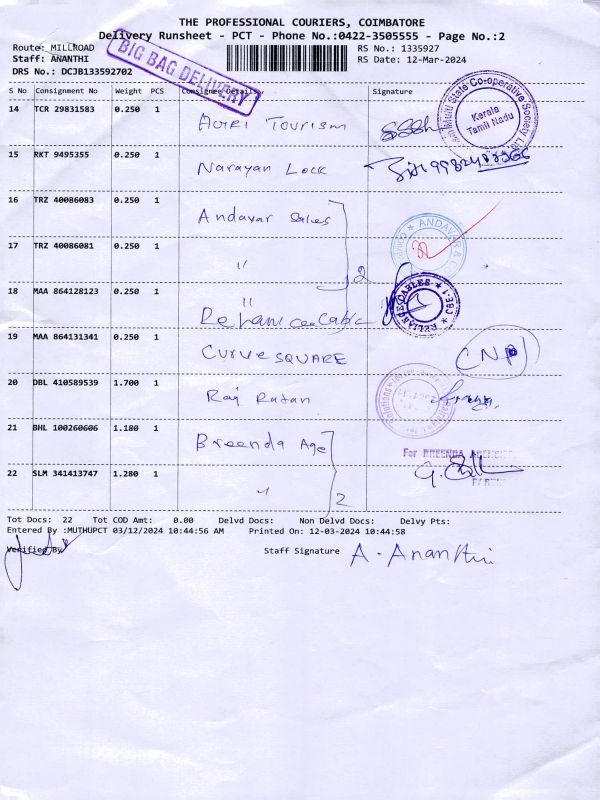 THE PROFESSIONAL COURIERS, COIMBATORE
Delivery Runsheet - PCT - Phone No.:0422-3505555 - Page No.:2
Route: MILLROAD RS No.: 1335927
Staff: ANANTHI RS Date: 12-Mar-2024
DRS No.: DCJB133592702
BIG BAG DELIVERY
S No Consignment No Weight PCS Consignee Details Signature
14 TCR 29831583 0.250 1
Tourism
Multi State Co-operative Society Ltd
Kerala
Tamil Nadu
15 RKT 9495355 0.250 1
Narayan Lock
16 TRZ 40086083 0.250 1
Andavar Sales
ANDAVAR &
17 TRZ 40086081 0.250 1
" 2
18 MAA 864128123 0.250 1
"
Cable
RELIANCE CABLES CBE-1
19 MAA 864131341 0.250 1
CURVE SQUARE
20 DBL 410589539 1.700 1
Raj Ratan
21 BHL 100260606 1.180 1
Breenda Age
For BREENDA AGENCIES
22 SLM 341413747 1.280 1
" 2
Tot Docs: 22 Tot COD Amt: 0.00 Delvd Docs: Non Delvd Docs: Delvy Pts:
Entered By :MUTHUPCT 03/12/2024 10:44:56 AM Printed On: 12-03-2024 10:44:58
Verified By Staff Signature A. Ananthi